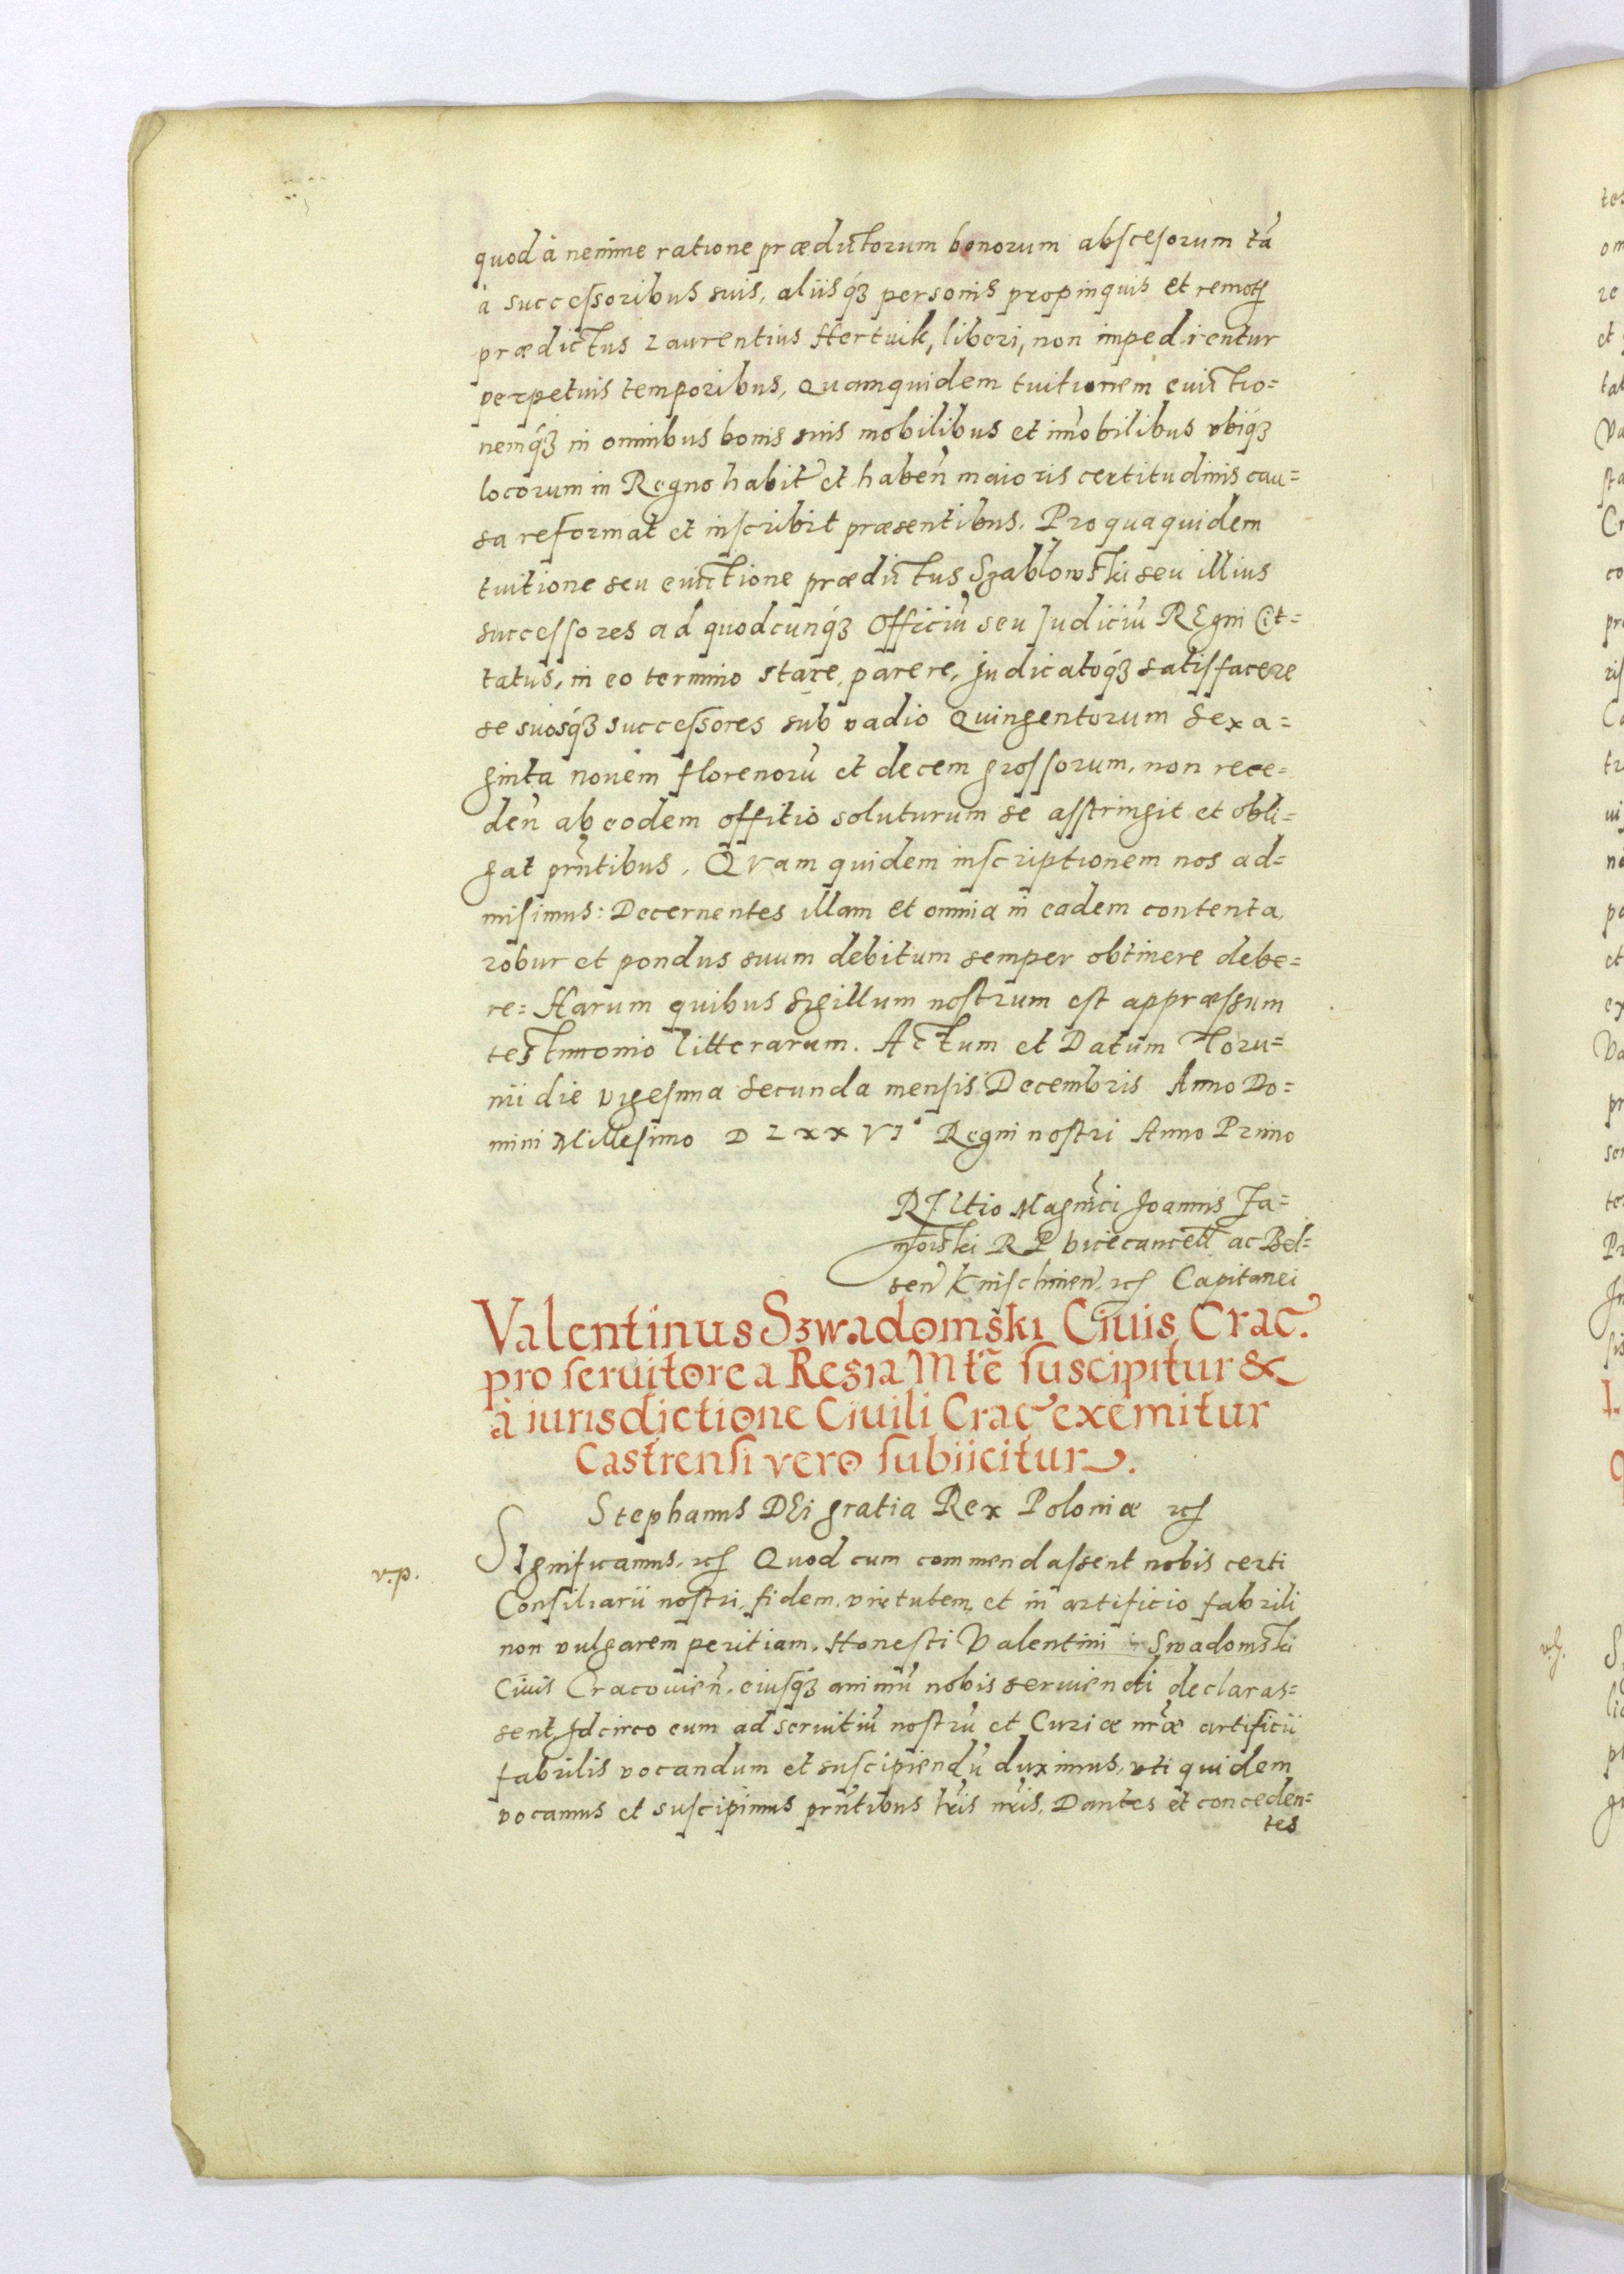 quod à nemine ratione prædictorum bonorum abscesorum tã
à successoribus suis, aliisq́ꝫ personis propinquis et remotꝭ
prædictus Laurentius Hertuik, liberi, non impedirentur
perpetuis temporibus, Quamquidem tuitionem euictio=
nemq́ꝫ in omnibus bonis suis mobilibus et im̃obilibus vbiq́ꝫ
locorum in Regno habit̃ et habeñ maioris certitudinis cau=
sa reformat et inscribit præsentibus. Pro qua quidem
tuitione seu euictione prædictus Szablowski seu illius
successores ad quodcunq́ꝫ Officiũ seu Judiciũ REgni Cit=
tatus, in eo termino stare, parere, judicatoq́ꝫ satisfacere
se suosq́ꝫ successores sub vadio Quingentorum Sexa=
ginta nouem florenorũ et decem grossorum, non rece=
deñ ab eodem offitio soluturum se asstringit et obli=
gat prñtibus. QVam quidem inscriptionem nos ad=
misimus: Decernentes illam et omnia in eadem contenta,
robur et pondus suum debitum semper obtinere debe=
re= Harum quibus Sigillum nostrum est appræssum
testimonio litterarum. Actum et Datum Toru=
nii die vigesima Secunda mensis Decembris Anno Do=
mini Millesimo D L x x VI° Regni nostri Anno Primo
Rꝭltio Magñci Joannis Za=
mojski R P vicecancell ac Bel=
señ Knischineñ ꝛcꝭ Capitanei
Valentinus Szwadomski Ciuis Crac̃.
pro seruitore a Regia Mtẽ suscipitur &
à iurisdictione Ciuili Crac̃ exemitur
Castrensi vero subiicitur.
Stephanus DEi gratia Rex Poloniæ ꝛcꝭ
v.p.
SIgnificamus, ꝛcꝭ Quod cum commendassent nobis certi
Consiliarii nostri, fidem, virtutem et in artificio fabrili
non vulgarem peritiam, Honesti Valentini Swadomski
Ciuis Cracouieñ, eiusq́ꝫ animũ nobis seruiendi declaras=
sent, Jdcirco eum ad seruitiũ nostrũ et Curiæ nr̃æ artificii
fabrilis vocandum et suscipiendũ duximus, vti quidem
vocamus et suscipimus prñtibus lr̃is nr̃is, Dantes et conceden=
tes